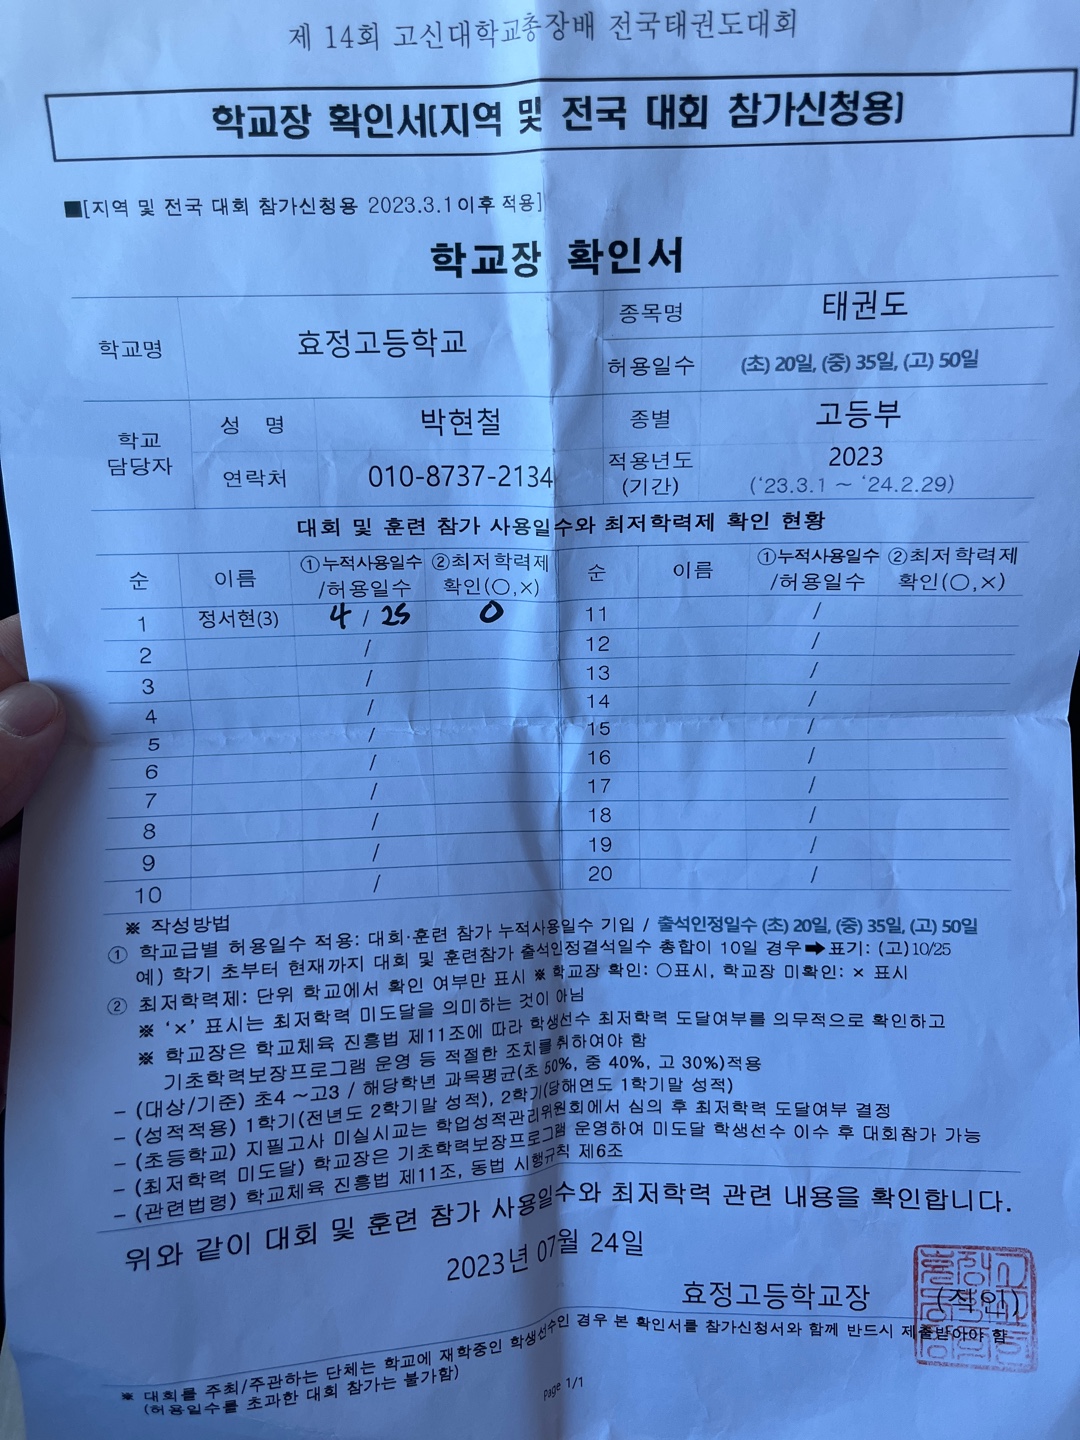 제 14회 고신대학교총장배 전국태권도대회
학교장 확인서(지역 및 전국 대회 참가신청용)
■[지역 및 전국 대회 참가신청용 2023.3.1이후 적용]
학교장 확인서
학교명 효정고등학교 종목명 태권도
허용일수 (초) 20일, (중) 35일, (고) 50일
학교 담당자 성 명 박현철 종별 고등부
연락처 010-8737-2134 적용년도 2023
(기간) ('23.3.1 ~ '24.2.29)
대회 및 훈련 참가 사용일수와 최저학력제 확인 현황
순 이름 ①누적사용일수 ②최저학력제 순 이름 ①누적사용일수 ②최저학력제
/허용일수 확인(○,×) /허용일수 확인(○,×)
1 정서현(3) 4 / 25 O 11 /
2 / 12 /
3 / 13 /
4 / 14 /
5 / 15 /
6 / 16 /
7 / 17 /
8 / 18 /
9 / 19 /
10 / 20 /
※ 작성방법
① 학교급별 허용일수 적용: 대회·훈련 참가 누적사용일수 기입 / 출석인정일수 (초) 20일, (중) 35일, (고) 50일
예) 학기 초부터 현재까지 대회 및 훈련참가 출석인정결석일수 총합이 10일 경우➡표기: (고)10/25
② 최저학력제: 단위 학교에서 확인 여부만 표시 ※ 학교장 확인: ○표시, 학교장 미확인: × 표시
※ '×' 표시는 최저학력 미도달을 의미하는 것이 아님
※ 학교장은 학교체육 진흥법 제11조에 따라 학생선수 최저학력 도달여부를 의무적으로 확인하고
기초학력보장프로그램 운영 등 적절한 조치를 취하여야 함
- (대상/기준) 초4 ~고3 / 해당학년 과목평균(초 50%, 중 40%, 고 30%)적용
- (성적적용) 1학기(전년도 2학기말 성적), 2학기(당해연도 1학기말 성적)
- (초등학교) 지필고사 미실시교는 학업성적관리위원회에서 심의 후 최저학력 도달여부 결정
- (최저학력 미도달) 학교장은 기초학력보장프로그램 운영하여 미도달 학생선수 이수 후 대회참가 가능
- (관련법령) 학교체육 진흥법 제11조, 동법 시행규칙 제6조
위와 같이 대회 및 훈련 참가 사용일수와 최저학력 관련 내용을 확인합니다.
2023년 07월 24일
효정고등학교장 (직인)
※ 대회를 주최/주관하는 단체는 학교에 재학중인 학생선수인 경우 본 확인서를 참가신청서와 함께 반드시 제출받아야 함
(허용일수를 초과한 대회 참가는 불가함)
Page 1/1